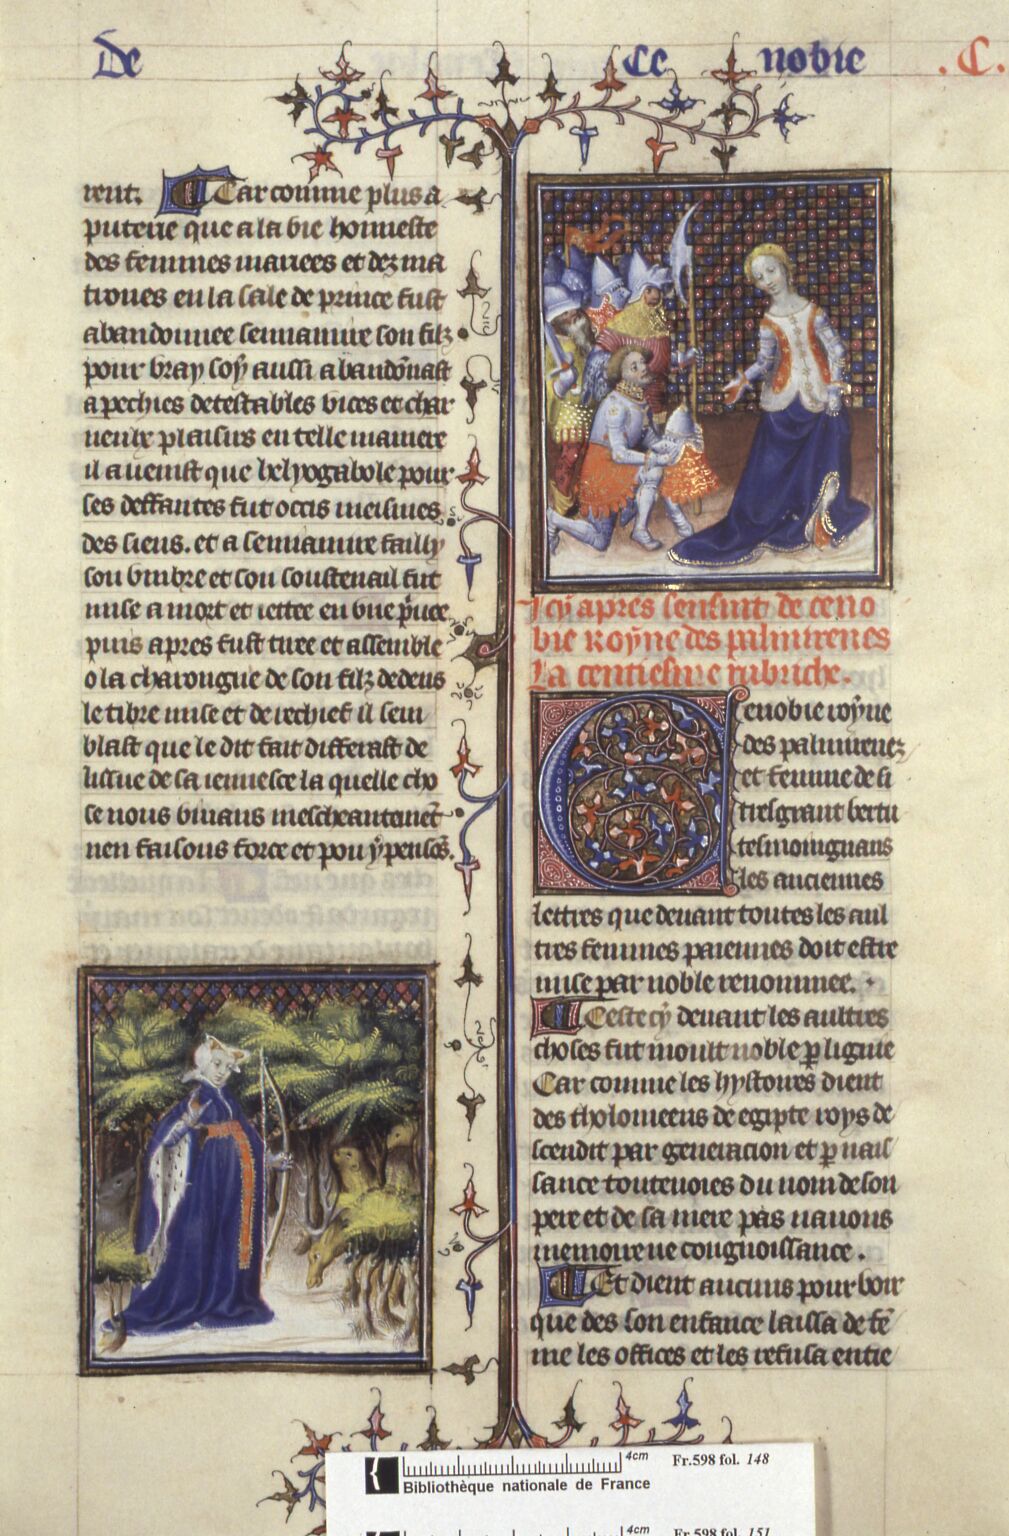 De Ce nobie .C.
rent. Car comme plus a
puterie que a la vie honneste
des femmes mariees et dez ma
trones en la sale de prince fust
abandonnee semiamire son filz
pour vray soy aussi abandonast
a pechies detestables vices et char
neulx plaisirs en telle maniere
il avenist que helyogabole pour
ses deffautes fut occis meismes
des siens. et a semiamire failly
son umbre et son soustenail fut
mise a mort et iettee en une price
puis apres fust tiree et assemble
o la charongne de son filz dedens
le tibre mise et de rechief il sem
blast que le dit fait differast de
lissue de sa iennesce la quelle cho
se nous vivans mescheantement
nen faisons force et pou y pensons.
Icy apres sensuit de ceno
bie royne des palmirenes
La centiesme rubriche.
Cenobie royne
des palmirenez
et femme de si
tresgrant vertu
tesmoingnans
les anciennes
lettres que devant toutes les aul
tres femmes paiennes doit estre
mise par noble renommee.
Ceste cy devant les aultres
choses fut moult noble par lignie
Car comme les hystoires dient
des tholomeens de egipte roys de
scendit par generacion et par nais
sance toutevoies du nom de son
pere et de sa mere pas navons
memoire ne congnoissance.
Et dient aucuns pour voir
que des son enfance laissa de fem
me les offices et les refusa entie
4cm Fr.598 fol. 148
Bibliothèque nationale de France
4cm Fr.598 fol. 151